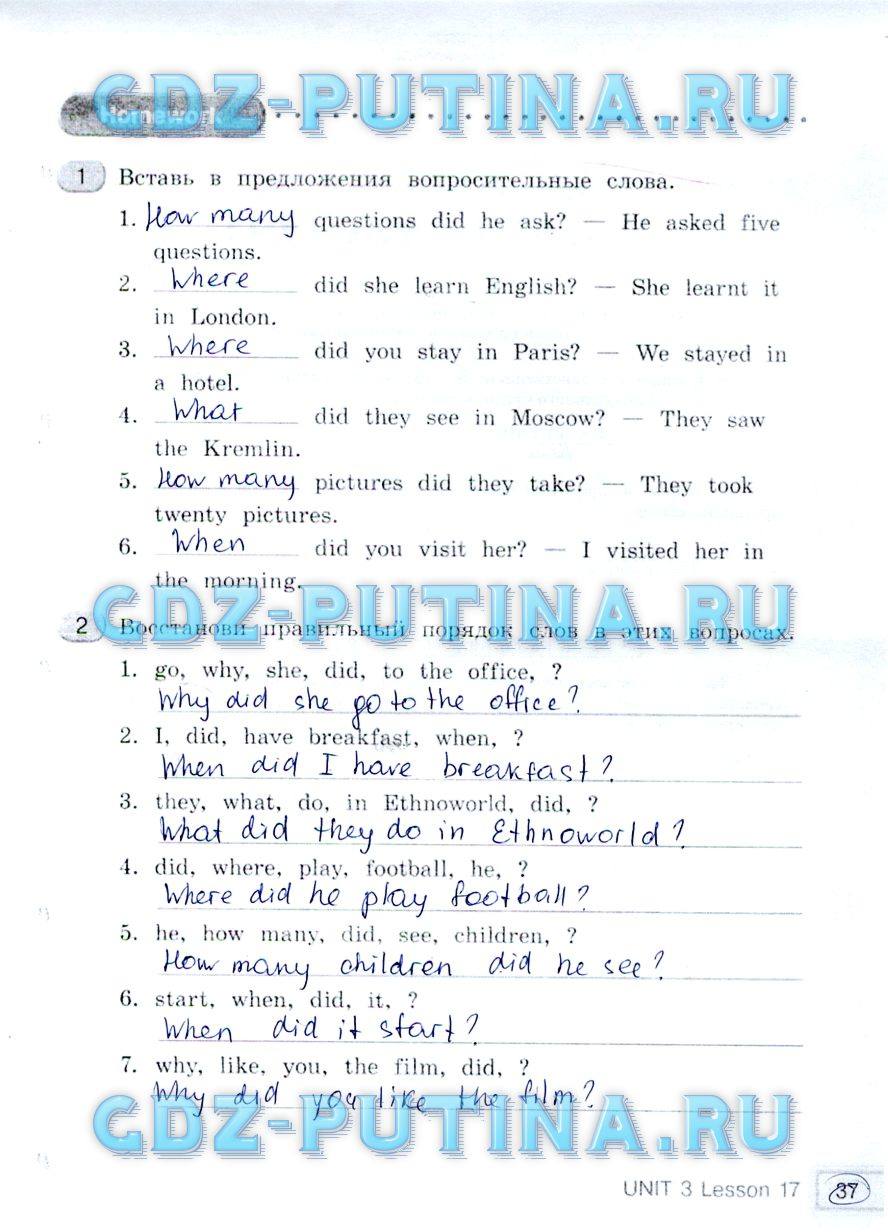 GDZ-PUTINA.RU
Homework
1 Вставь в предложения вопросительные слова.
1. How many questions did he ask? — He asked five
questions.
2. Where did she learn English? — She learnt it
in London.
3. Where did you stay in Paris? — We stayed in
a hotel.
4. What did they see in Moscow? — They saw
the Kremlin.
5. How many pictures did they take? — They took
twenty pictures.
6. When did you visit her? — I visited her in
the morning.
GDZ-PUTINA.RU
2 Восстанови правильный порядок слов в этих вопросах.
1. go, why, she, did, to the office, ?
Why did she go to the office?
2. I, did, have breakfast, when, ?
When did I have breakfast?
3. they, what, do, in Ethnoworld, did, ?
What did they do in Ethnoworld?
4. did, where, play, football, he, ?
Where did he play football?
5. he, how many, did, see, children, ?
How many children did he see?
6. start, when, did, it, ?
When did it start?
7. why, like, you, the film, did, ?
Why did you like the film?
GDZ-PUTINA.RU
UNIT 3 Lesson 17 37